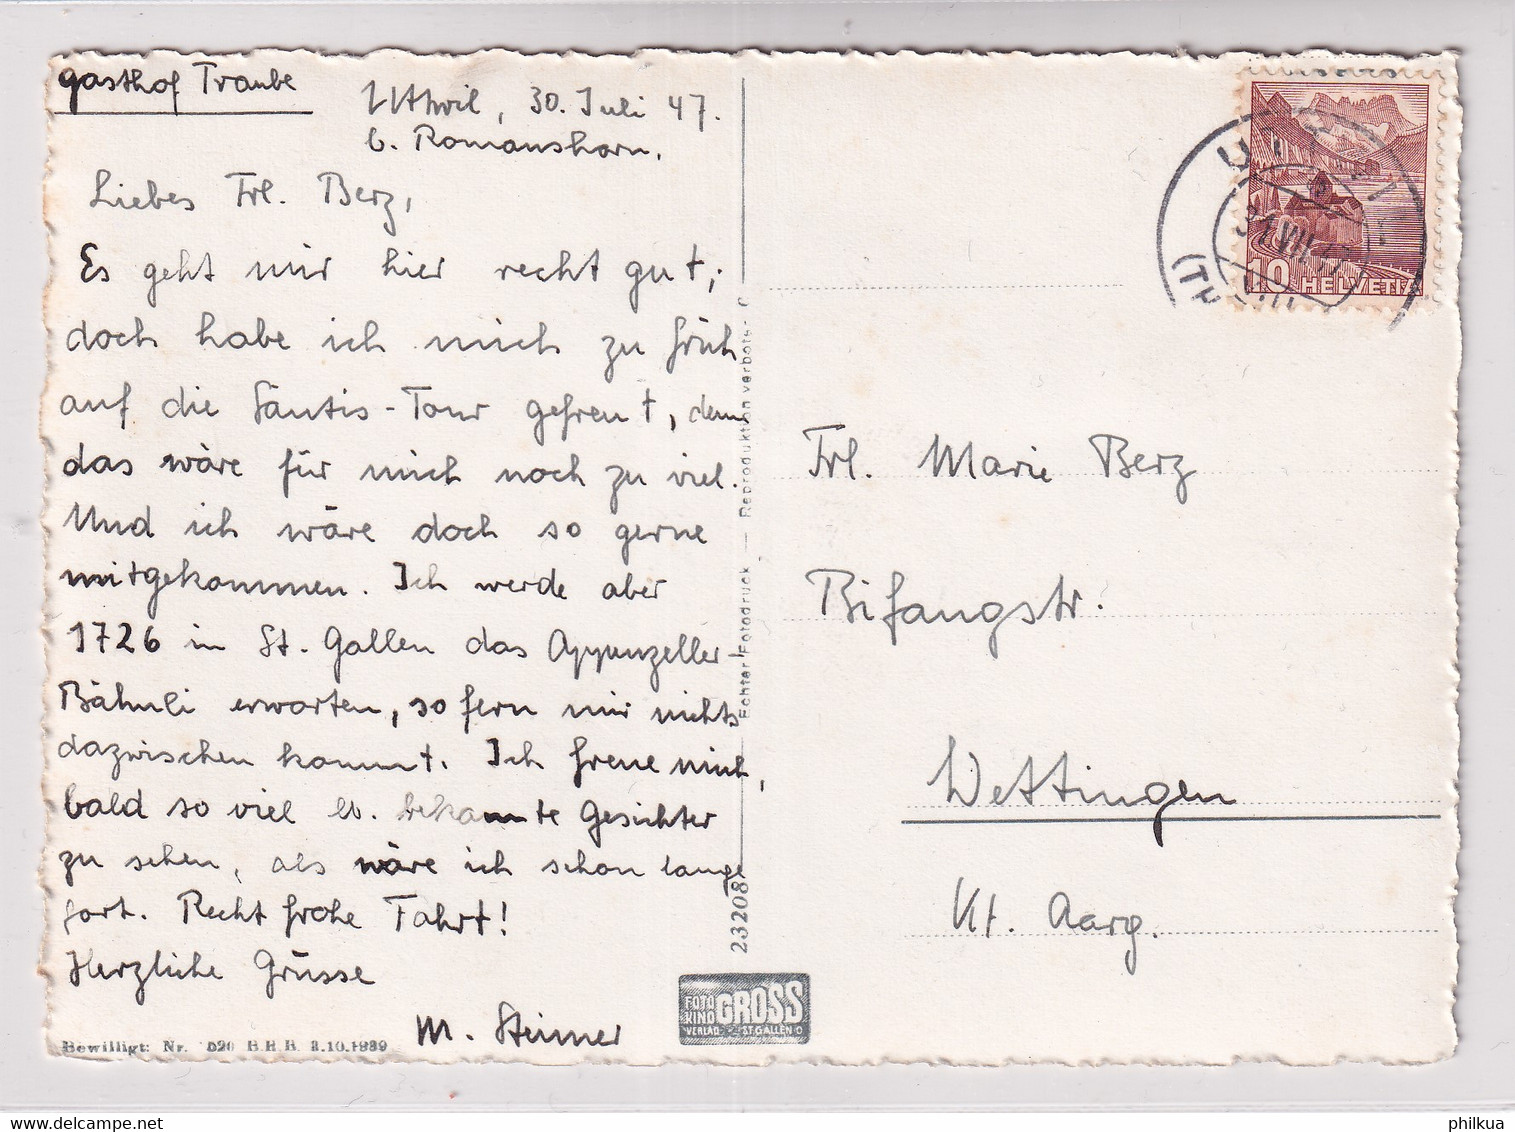 Gasthof Traube
Uttwil, 30. Juli 47.
b. Romanshorn.
Liebes Frl. Berz,
Es geht mir hier recht gut;
doch habe ich mich zu früh
auf die Säntis-Tour gefreut, denn
das wäre für mich noch zu viel.
Und ich wäre doch so gerne
mitgekommen. Ich werde aber
1726 in St. Gallen das Appenzeller-
Bähnli erwarten, sofern mir nichts
dazwischen kommt. Ich freue mich,
bald so viel lb. bekannte Gesichter
zu sehen, als wäre ich schon lange
fort. Recht frohe Fahrt!
Herzliche Grüsse
M. Steimer
Bewilligt: Nr. 520 B.R.B. 3.10.1939
Fotodruck — Reproduktion verboten
23208
FOTO
KINO
GROSS
VERLAG ST GALLEN O
10 HELVETIA
31.VII.47
Frl. Marie Berz
Bifangstr.
Wettingen
Kt. Aarg.
philkua